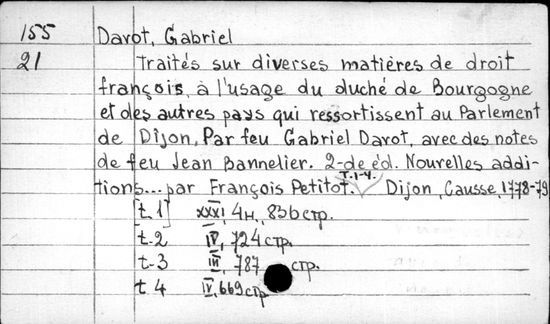 155 Davot, Gabriel
21 Traités sur diverses matières de droit
français, à l'usage du duché de Bourgogne
et des autres pays qui ressortissent au Parlement
de Dijon, Par feu Gabriel Davot, avec des notes
de feu Jean Bannelier. 2-de éd. Nouvelles addi-
tions... par François Petitot. T.1-4. Dijon, Causse, 1778-79
[t.1] XXXI, 4н., 836 стр.
t.2 IV, 724 стр.
t-3 III, 787 стр.
t4 IV, 669 стр